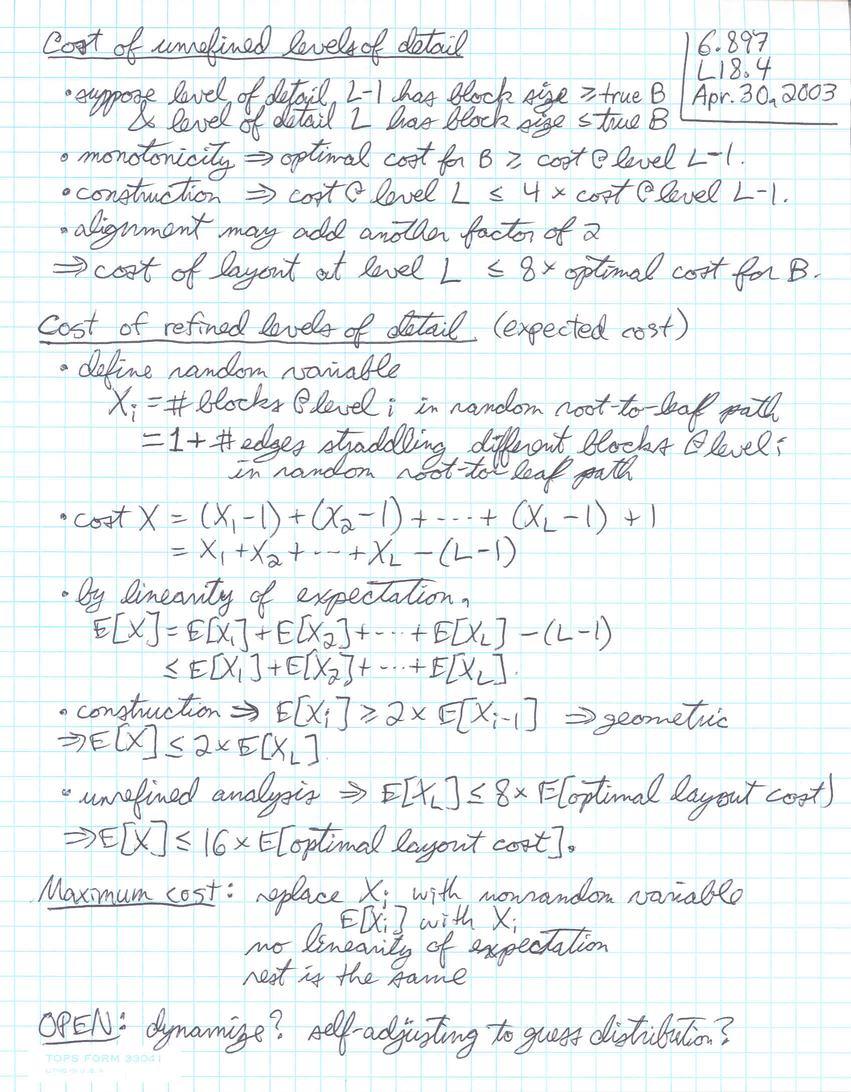 Cost of unrefined levels of detail
6.897
L18.4
Apr. 30, 2003
• suppose level of detail L-1 has block size ≥ true B
& level of detail L has block size ≤ true B
• monotonicity ⇒ optimal cost for B ≥ cost @ level L-1.
• construction ⇒ cost @ level L ≤ 4 × cost @ level L-1.
• alignment may add another factor of 2
⇒ cost of layout at level L ≤ 8 × optimal cost for B.
Cost of refined levels of detail (expected cost)
• define random variable
Xi = # blocks @ level i in random root-to-leaf path
= 1 + # edges straddling different blocks @ level i
in random root-to-leaf path
• cost X = (X1-1) + (X2-1) + ··· + (XL-1) + 1
= X1 + X2 + ··· + XL - (L-1)
• by linearity of expectation,
E[X] = E[X1] + E[X2] + ··· + E[XL] - (L-1)
≤ E[X1] + E[X2] + ··· + E[XL].
• construction ⇒ E[Xi] ≥ 2 × E[Xi-1] ⇒ geometric
⇒ E[X] ≤ 2 × E[XL].
• unrefined analysis ⇒ E[XL] ≤ 8 × E[optimal layout cost]
⇒ E[X] ≤ 16 × E[optimal layout cost].
Maximum cost: replace Xi with nonrandom variable
E[Xi] with Xi
no linearity of expectation
rest is the same
OPEN: dynamize? self-adjusting to guess distribution?
TOPS FORM 33041
LITHO IN U.S.A.